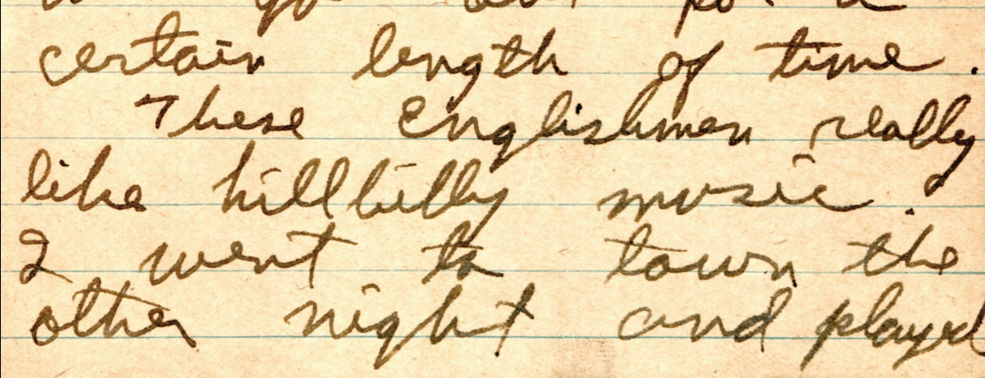 certain length of time.
These Englishmen really
like hillbilly music.
I went to town the
other night and played